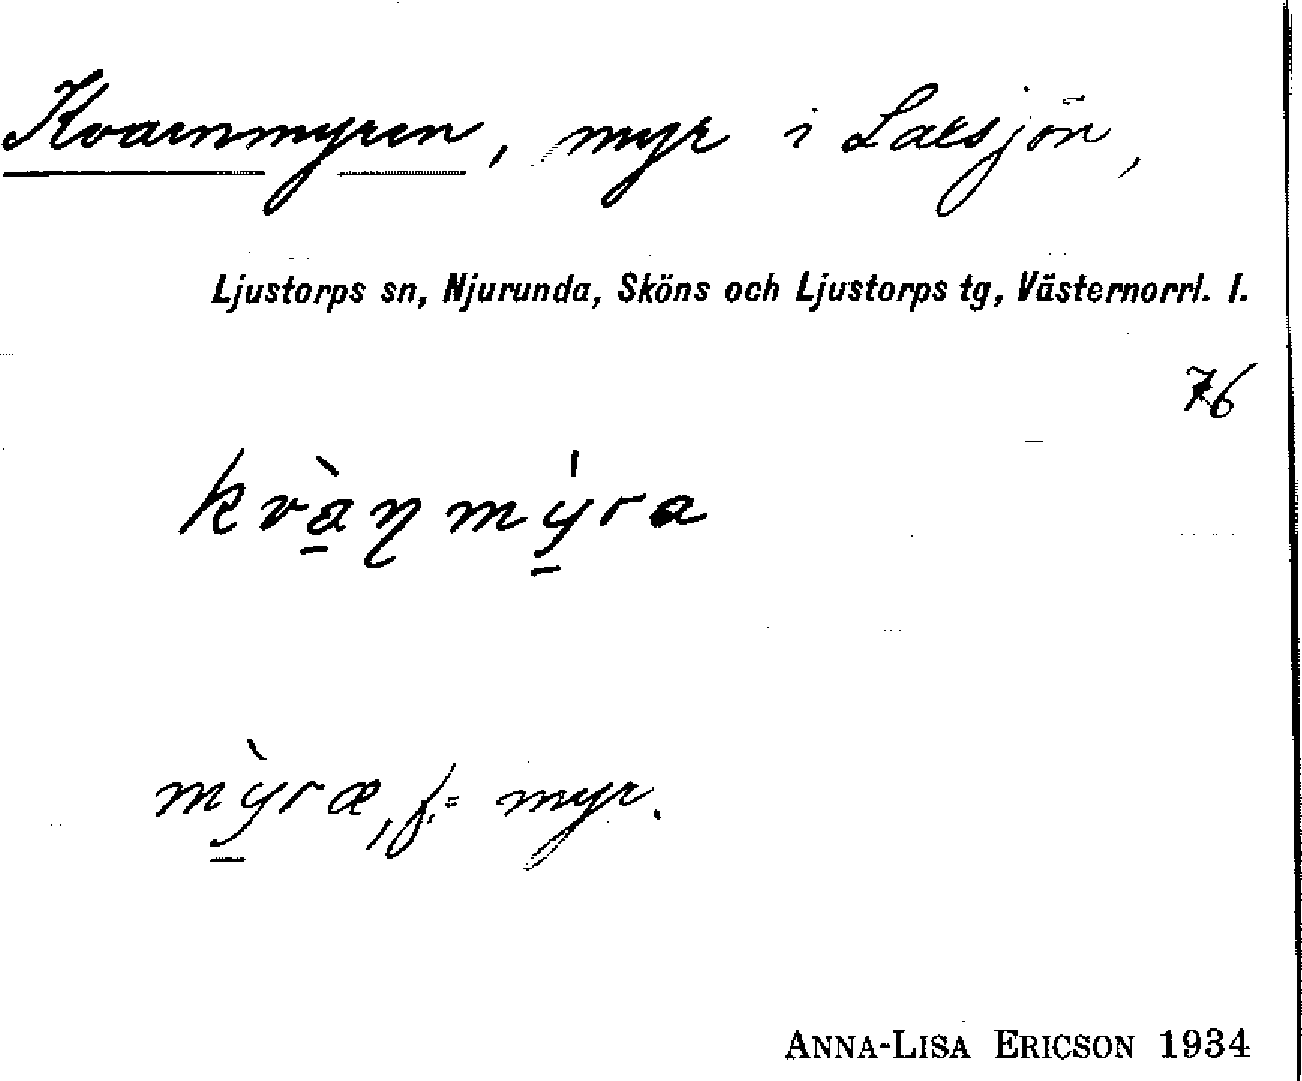 Kvarnmyren, myr i Laxsjön,
Ljustorps sn, Njurunda, Sköns och Ljustorps tg, Västernorrl. l.
76
kvàn̨mýra
mỳræ, f. = myr.
ANNA-LISA ERICSON 1934